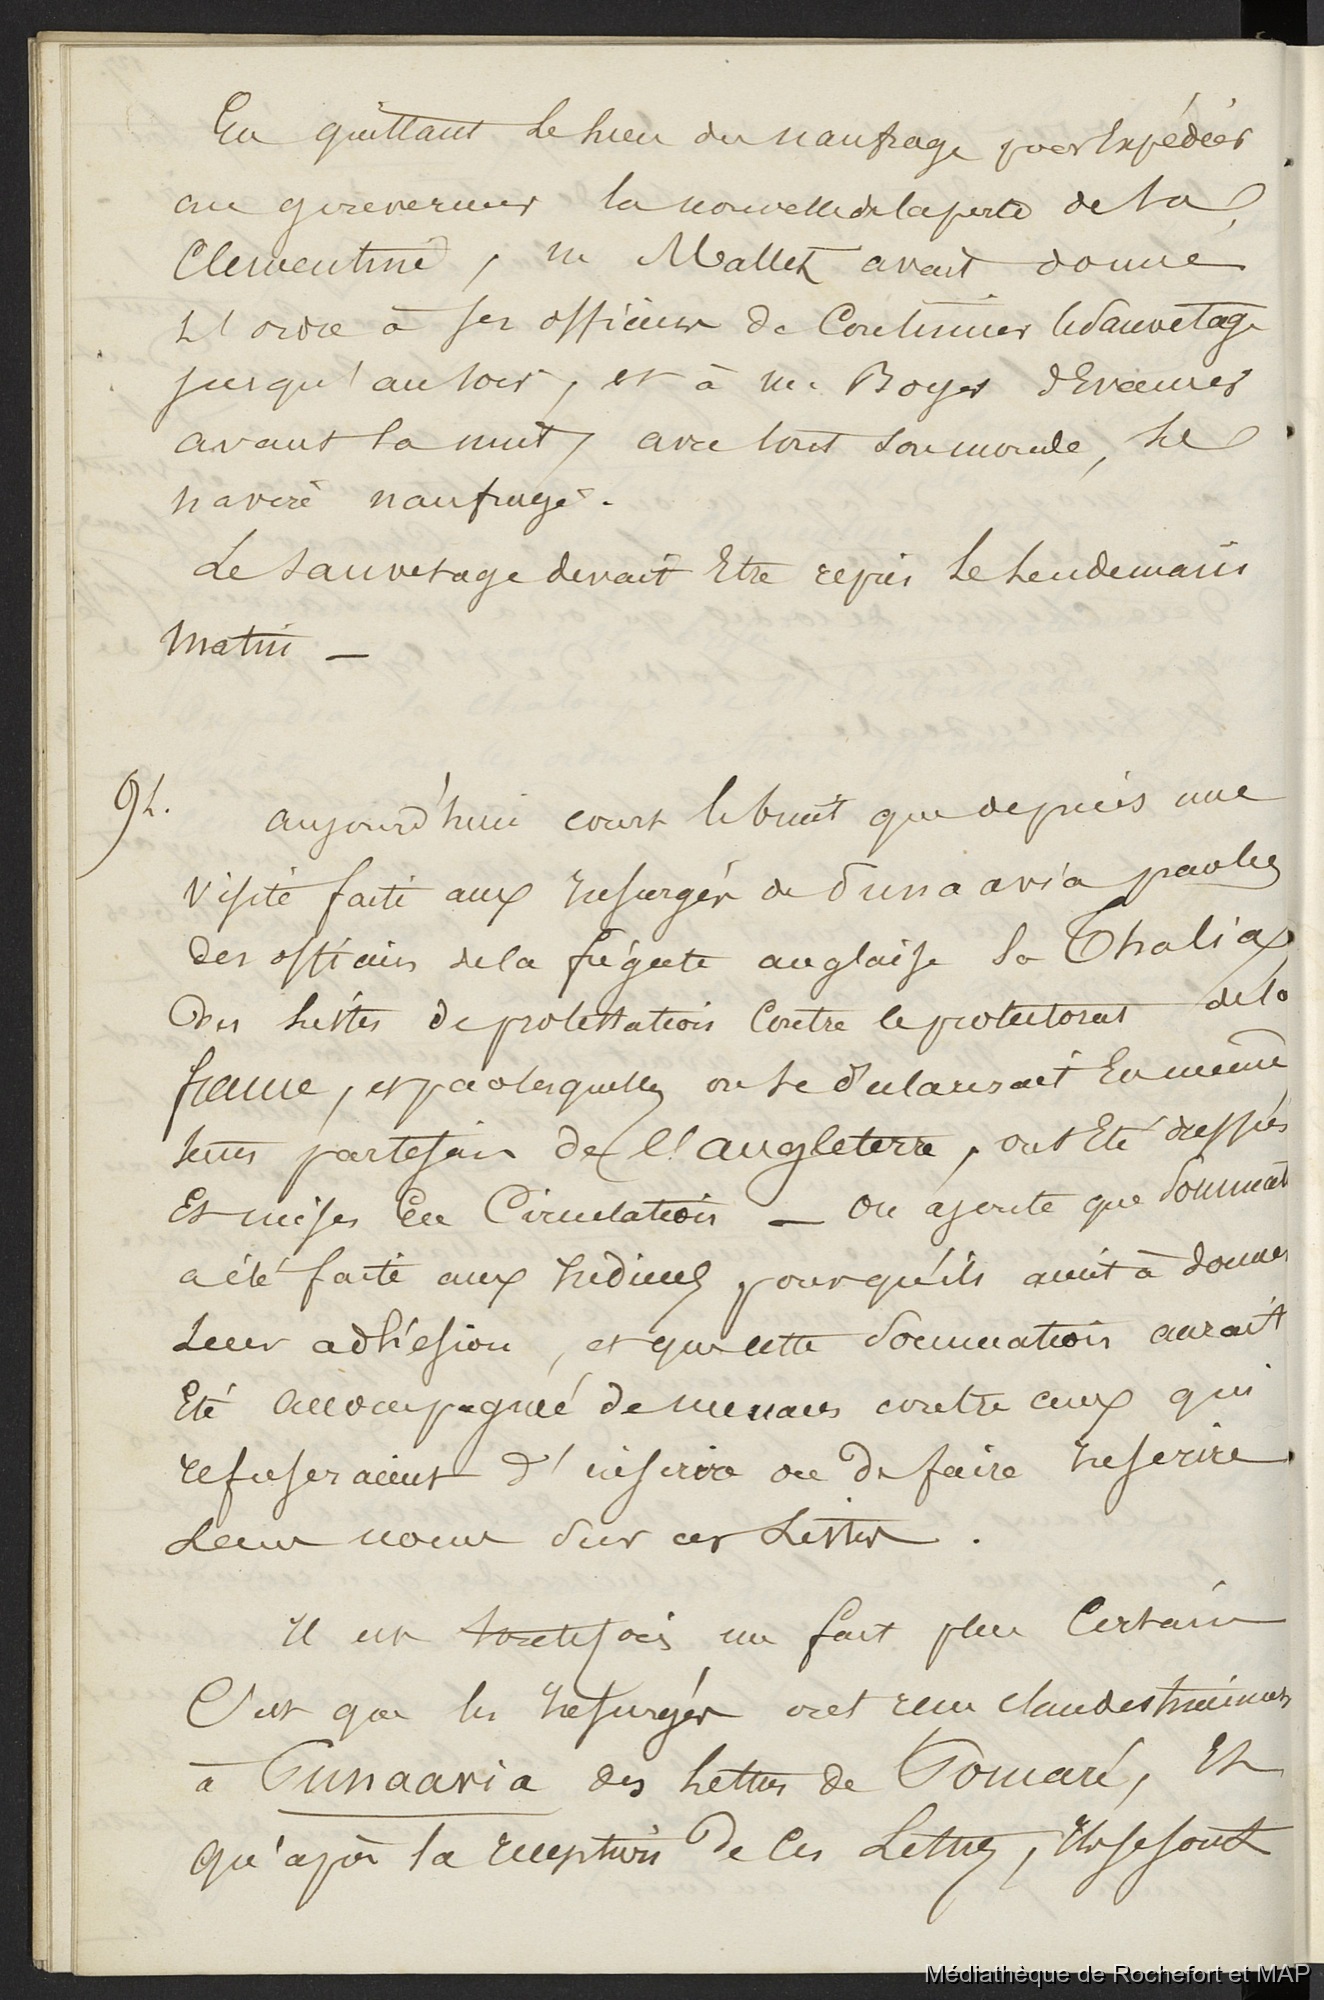 En quittant le lieu du naufrage pour Expédier
au gouverneur la nouvelle de la perte de la
Clementine, m Mallet avait donné
l'ordre à ses officiers de Continuer le Sauvetage
jusqu'au soir, et à m. Boyer d'Evacuer
avant la nuit, avec tout son monde, le
navire naufragé.
Le sauvetage devait Etre repris le lendemain
matin —
94. aujourd'hui court le bruit que depuis une
visite faite aux Insurgés de Punaavia par les
des officiers de la frégate anglaise la Thalia,
Des listes de protestation Contre le protectorat de la
france, et par lesquelles on se déclarerait En même
tems partisan de l'angleterre, ont Eté dressées
Et mises En Circulation — On ajoute que Sommat
a été faite aux Indiens, pour qu'ils aient à donner
Leur adhésion, et que cette Sommation aurait
Eté accompagnée de menaces contre ceux qui
refuseraient d'inscrire ou de faire Inscrire
Leur nom Sur ces Listes.
Il est toutefois un fait plus Certain
C'est que les Insurgés ont reçu clandestinement
à Punaavia des lettres de Pomaré, Et
qu'après la reception de Ces Lettres, Ils se sont
Médiathèque de Rochefort et MAP